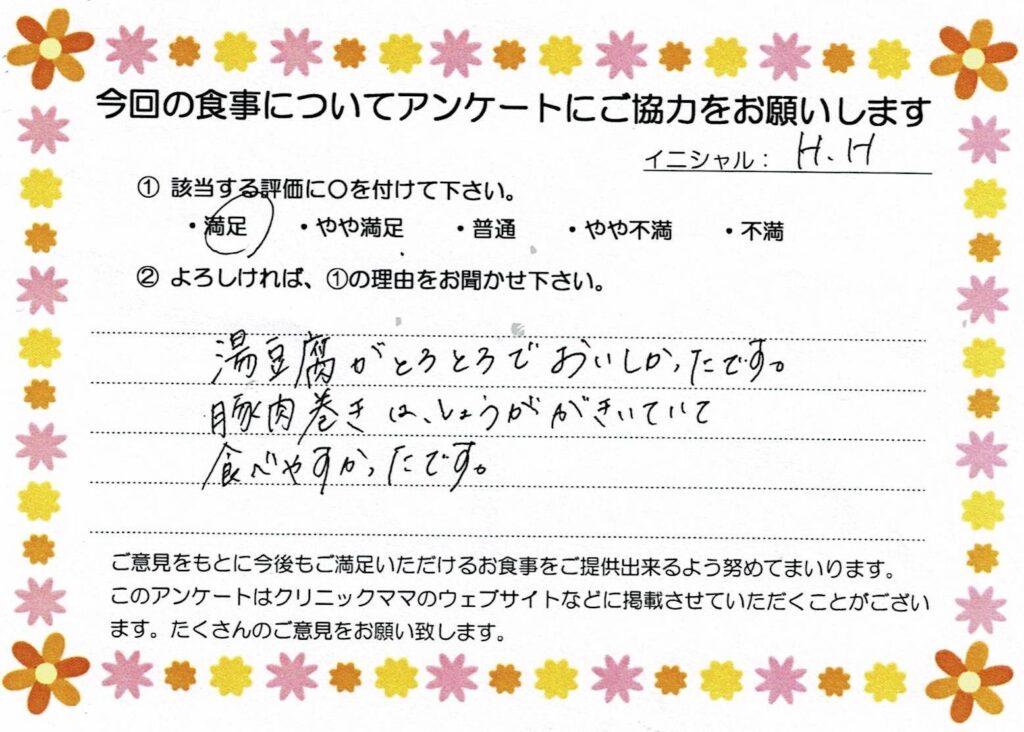 今回の食事についてアンケートにご協力をお願いします
イニシャル： H.H
① 該当する評価に○を付けて下さい。
・満足 ・やや満足 ・普通 ・やや不満 ・不満
② よろしければ、①の理由をお聞かせ下さい。
湯豆腐がとろとろでおいしかったです。
豚肉巻きは、しょうががきいていて
食べやすかったです。
ご意見をもとに今後もご満足いただけるお食事をご提供出来るよう努めてまいります。
このアンケートはクリニックママのウェブサイトなどに掲載させていただくことがござい
ます。たくさんのご意見をお願い致します。